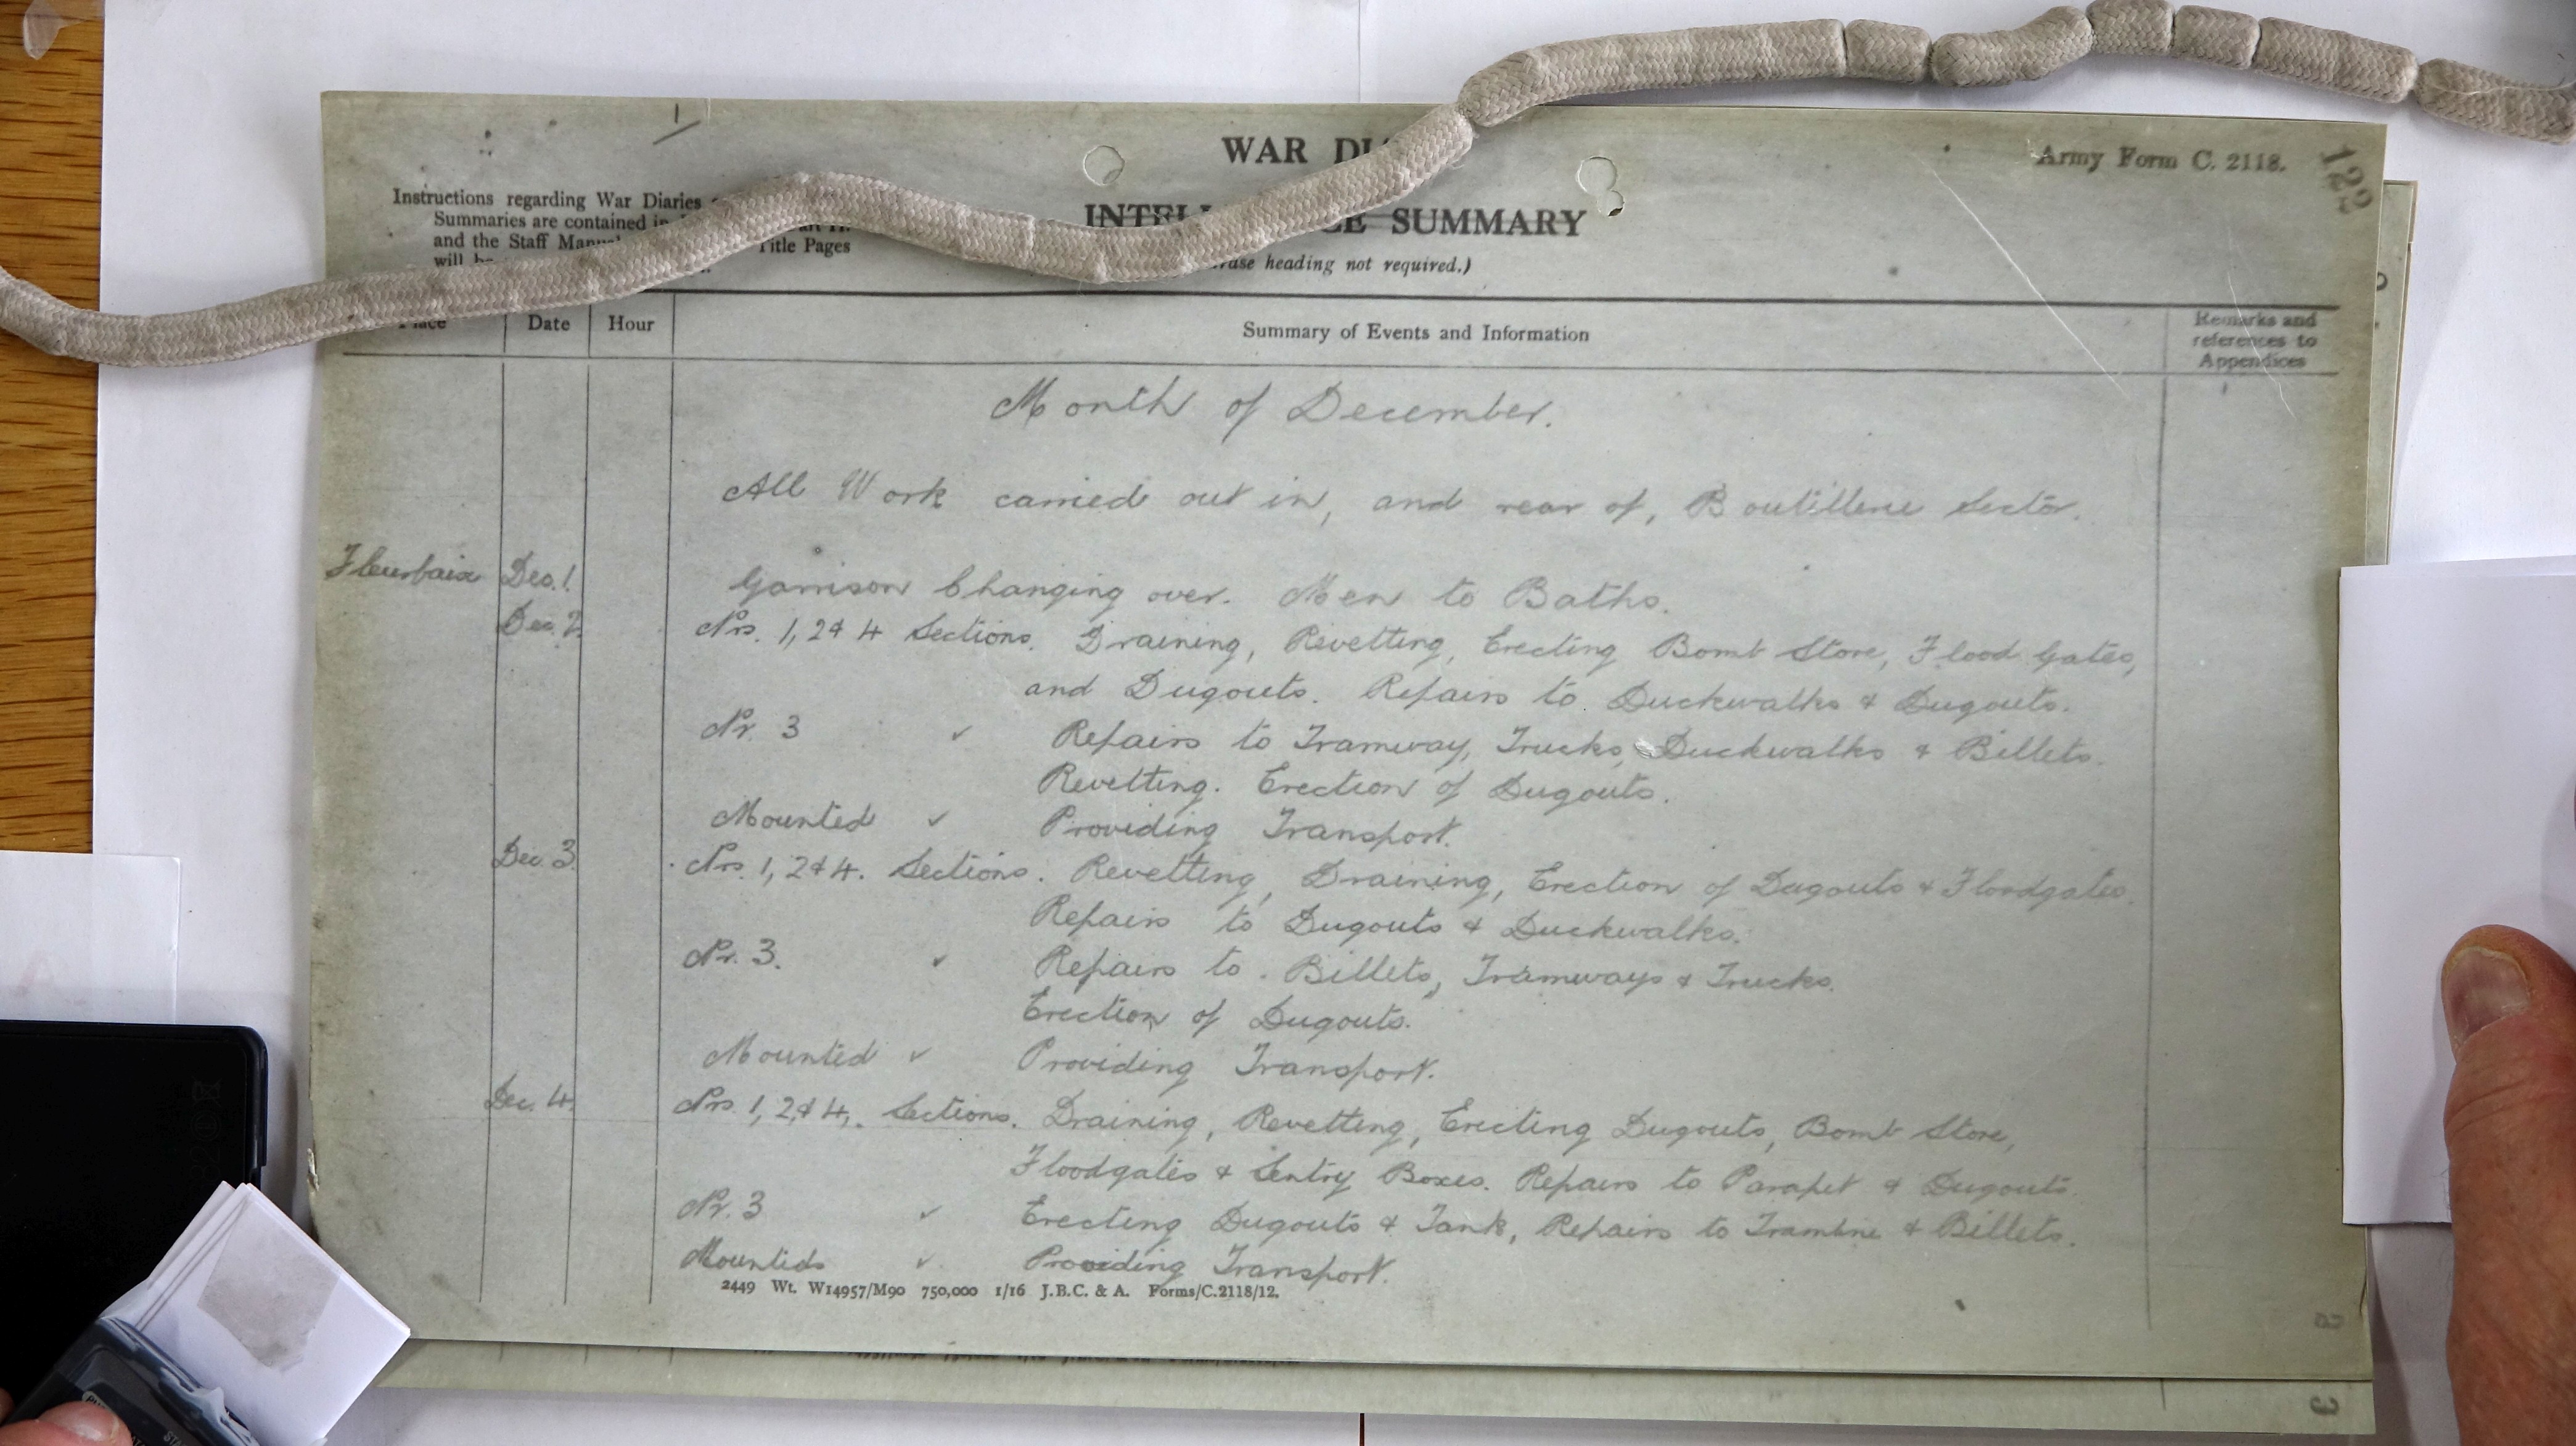 WAR DI
Army Form C. 2118.
122
Instructions regarding War Diaries
Summaries are contained in
and the Staff Manual
Title Pages
will be
SUMMARY
heading not required.)
Place Date Hour Summary of Events and Information Remarks and references to Appendices
Month of December.
All Work carried out in, and rear of, Boutillerie Sector.
Fleurbaix Dec. 1. Garrison Changing over. Men to Baths.
Dec. 2. Nrs. 1, 2 & 4 Sections. Draining, Revetting, Erecting Bomb Store, Flood Gates,
and Dugouts. Repairs to Duckwalks & Dugouts.
Nr. 3 " Repairs to Tramway, Trucks, Duckwalks & Billets.
Revetting. Erection of Dugouts.
Mounted " Providing Transport.
Dec. 3 Nrs. 1, 2 & 4. Sections. Revetting, Draining, Erection of Dugouts & Floodgates.
Repairs to Dugouts & Duckwalks.
Nr. 3. " Repairs to Billets, Tramways & Trucks.
Erection of Dugouts.
Mounted " Providing Transport.
Dec. 4. Nrs. 1, 2, & 4, Sections. Draining, Revetting, Erecting Dugouts, Bomb Store,
Floodgates & Sentry Boxes. Repairs to Parapet & Dugouts.
Nr. 3 " Erecting Dugouts & Tank, Repairs to Tramline & Billets.
Mounteds " Providing Transport.
2449 Wt. W14957/M90 750,000 1/16 J.B.C. & A. Forms/C.2118/12.
3